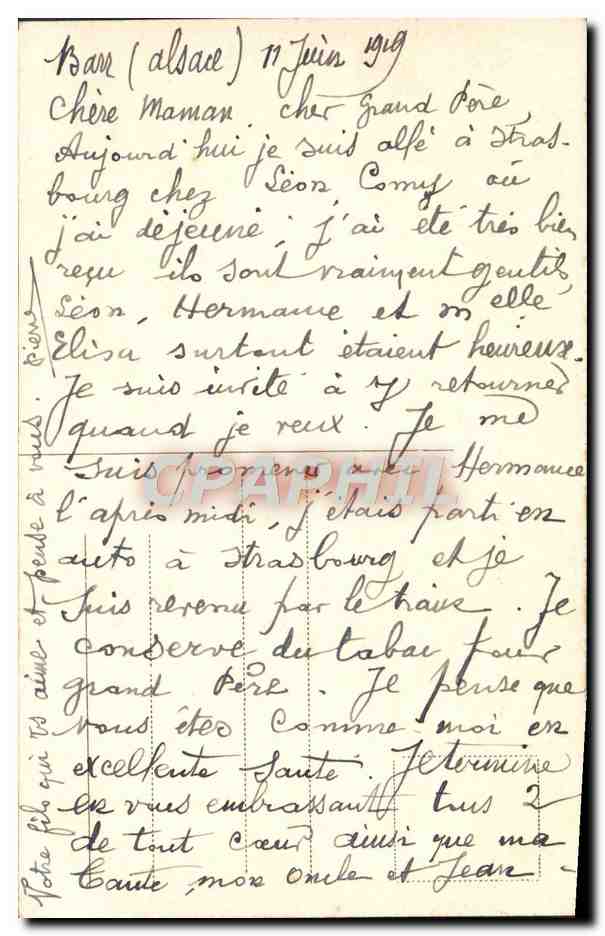 Barr (alsace) 11 Juin 1919
Chère Maman. cher Grand Père,
Aujourd'hui je suis allé à Stras-
bourg chez Léon Comy où
j'ai déjeuné, j'ai été très bien
reçu ils sont vraiment gentils,
Léon, Hermance et m elle
Elisa surtout étaient heureux.
Je suis invité à y retourner
quand je veux. Je me
suis promené avec Hermance
l'après midi, j'étais parti en
auto à Strasbourg et je
suis revenu par le train. Je
conserve du tabac pour
grand Père. Je pense que
vous êtes comme moi en
excellente santé. Je termine
en vous embrassant tous 2
de tout cœur ainsi que ma
tante, mon oncle et Jean -
Votre fils qui vs aime et pense à vous. Pierre
CPAPHIL